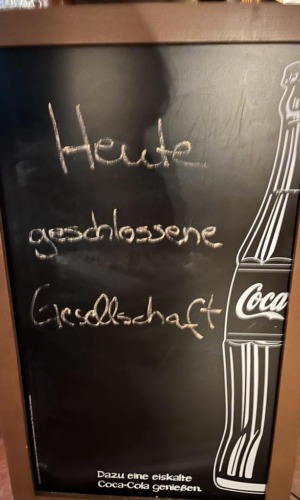 Heute
geschlossene
Gesellschaft
Coca
Dazu eine eiskalte
Coca-Cola genießen.